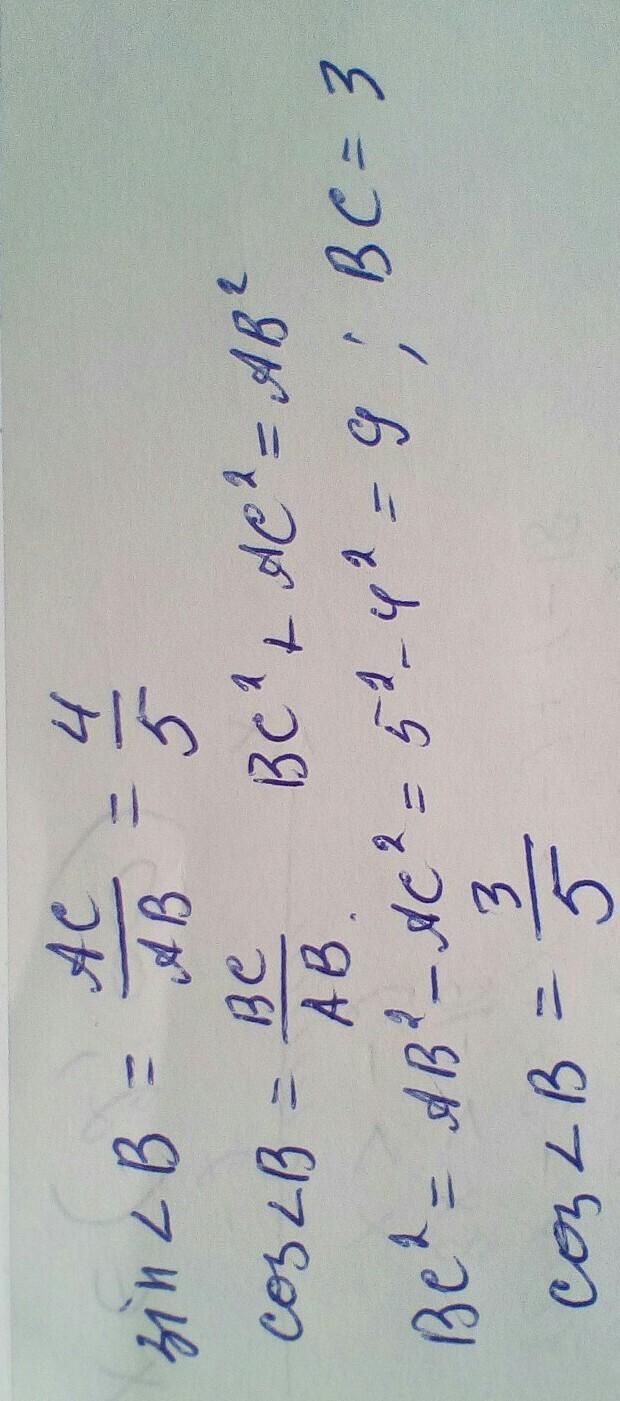 sin∠B = AC/AB = 4/5
cos∠B = BC/AB. BC² + AC² = AB²
BC² = AB² - AC² = 5² - 4² = 9 ; BC = 3
cos∠B = 3/5